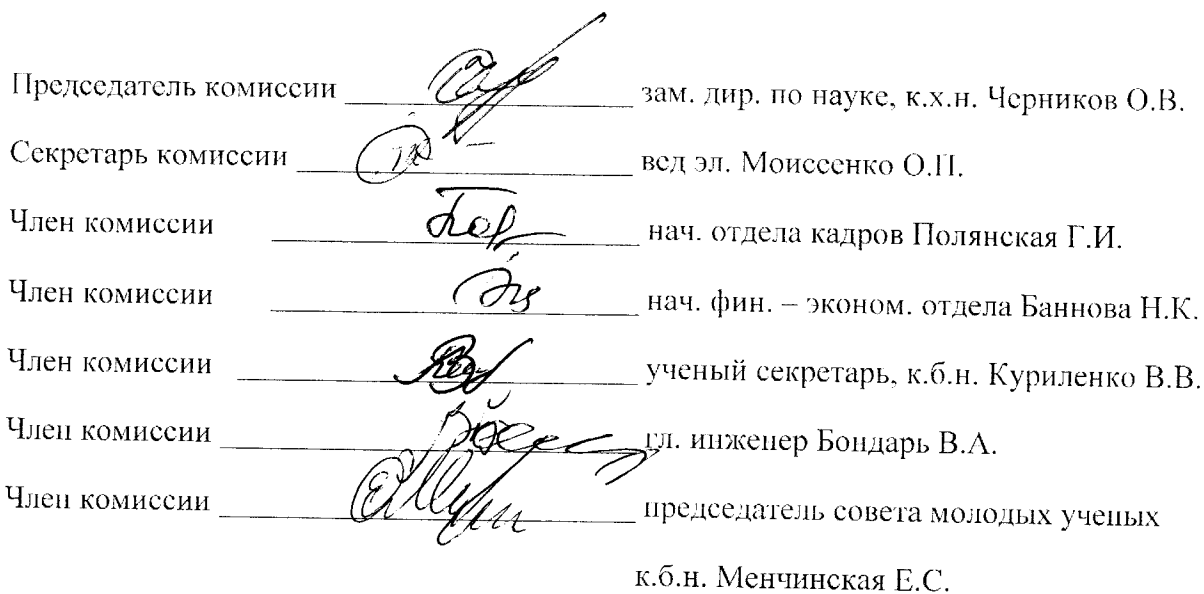 Председатель комиссии зам. дир. по науке, к.х.н. Черников О.В.
Секретарь комиссии вед эл. Моисеенко О.П.
Член комиссии нач. отдела кадров Полянская Г.И.
Член комиссии нач. фин. – эконом. отдела Баннова Н.К.
Член комиссии ученый секретарь, к.б.н. Куриленко В.В.
Член комиссии гл. инженер Бондарь В.А.
Член комиссии председатель совета молодых ученых
к.б.н. Менчинская Е.С.